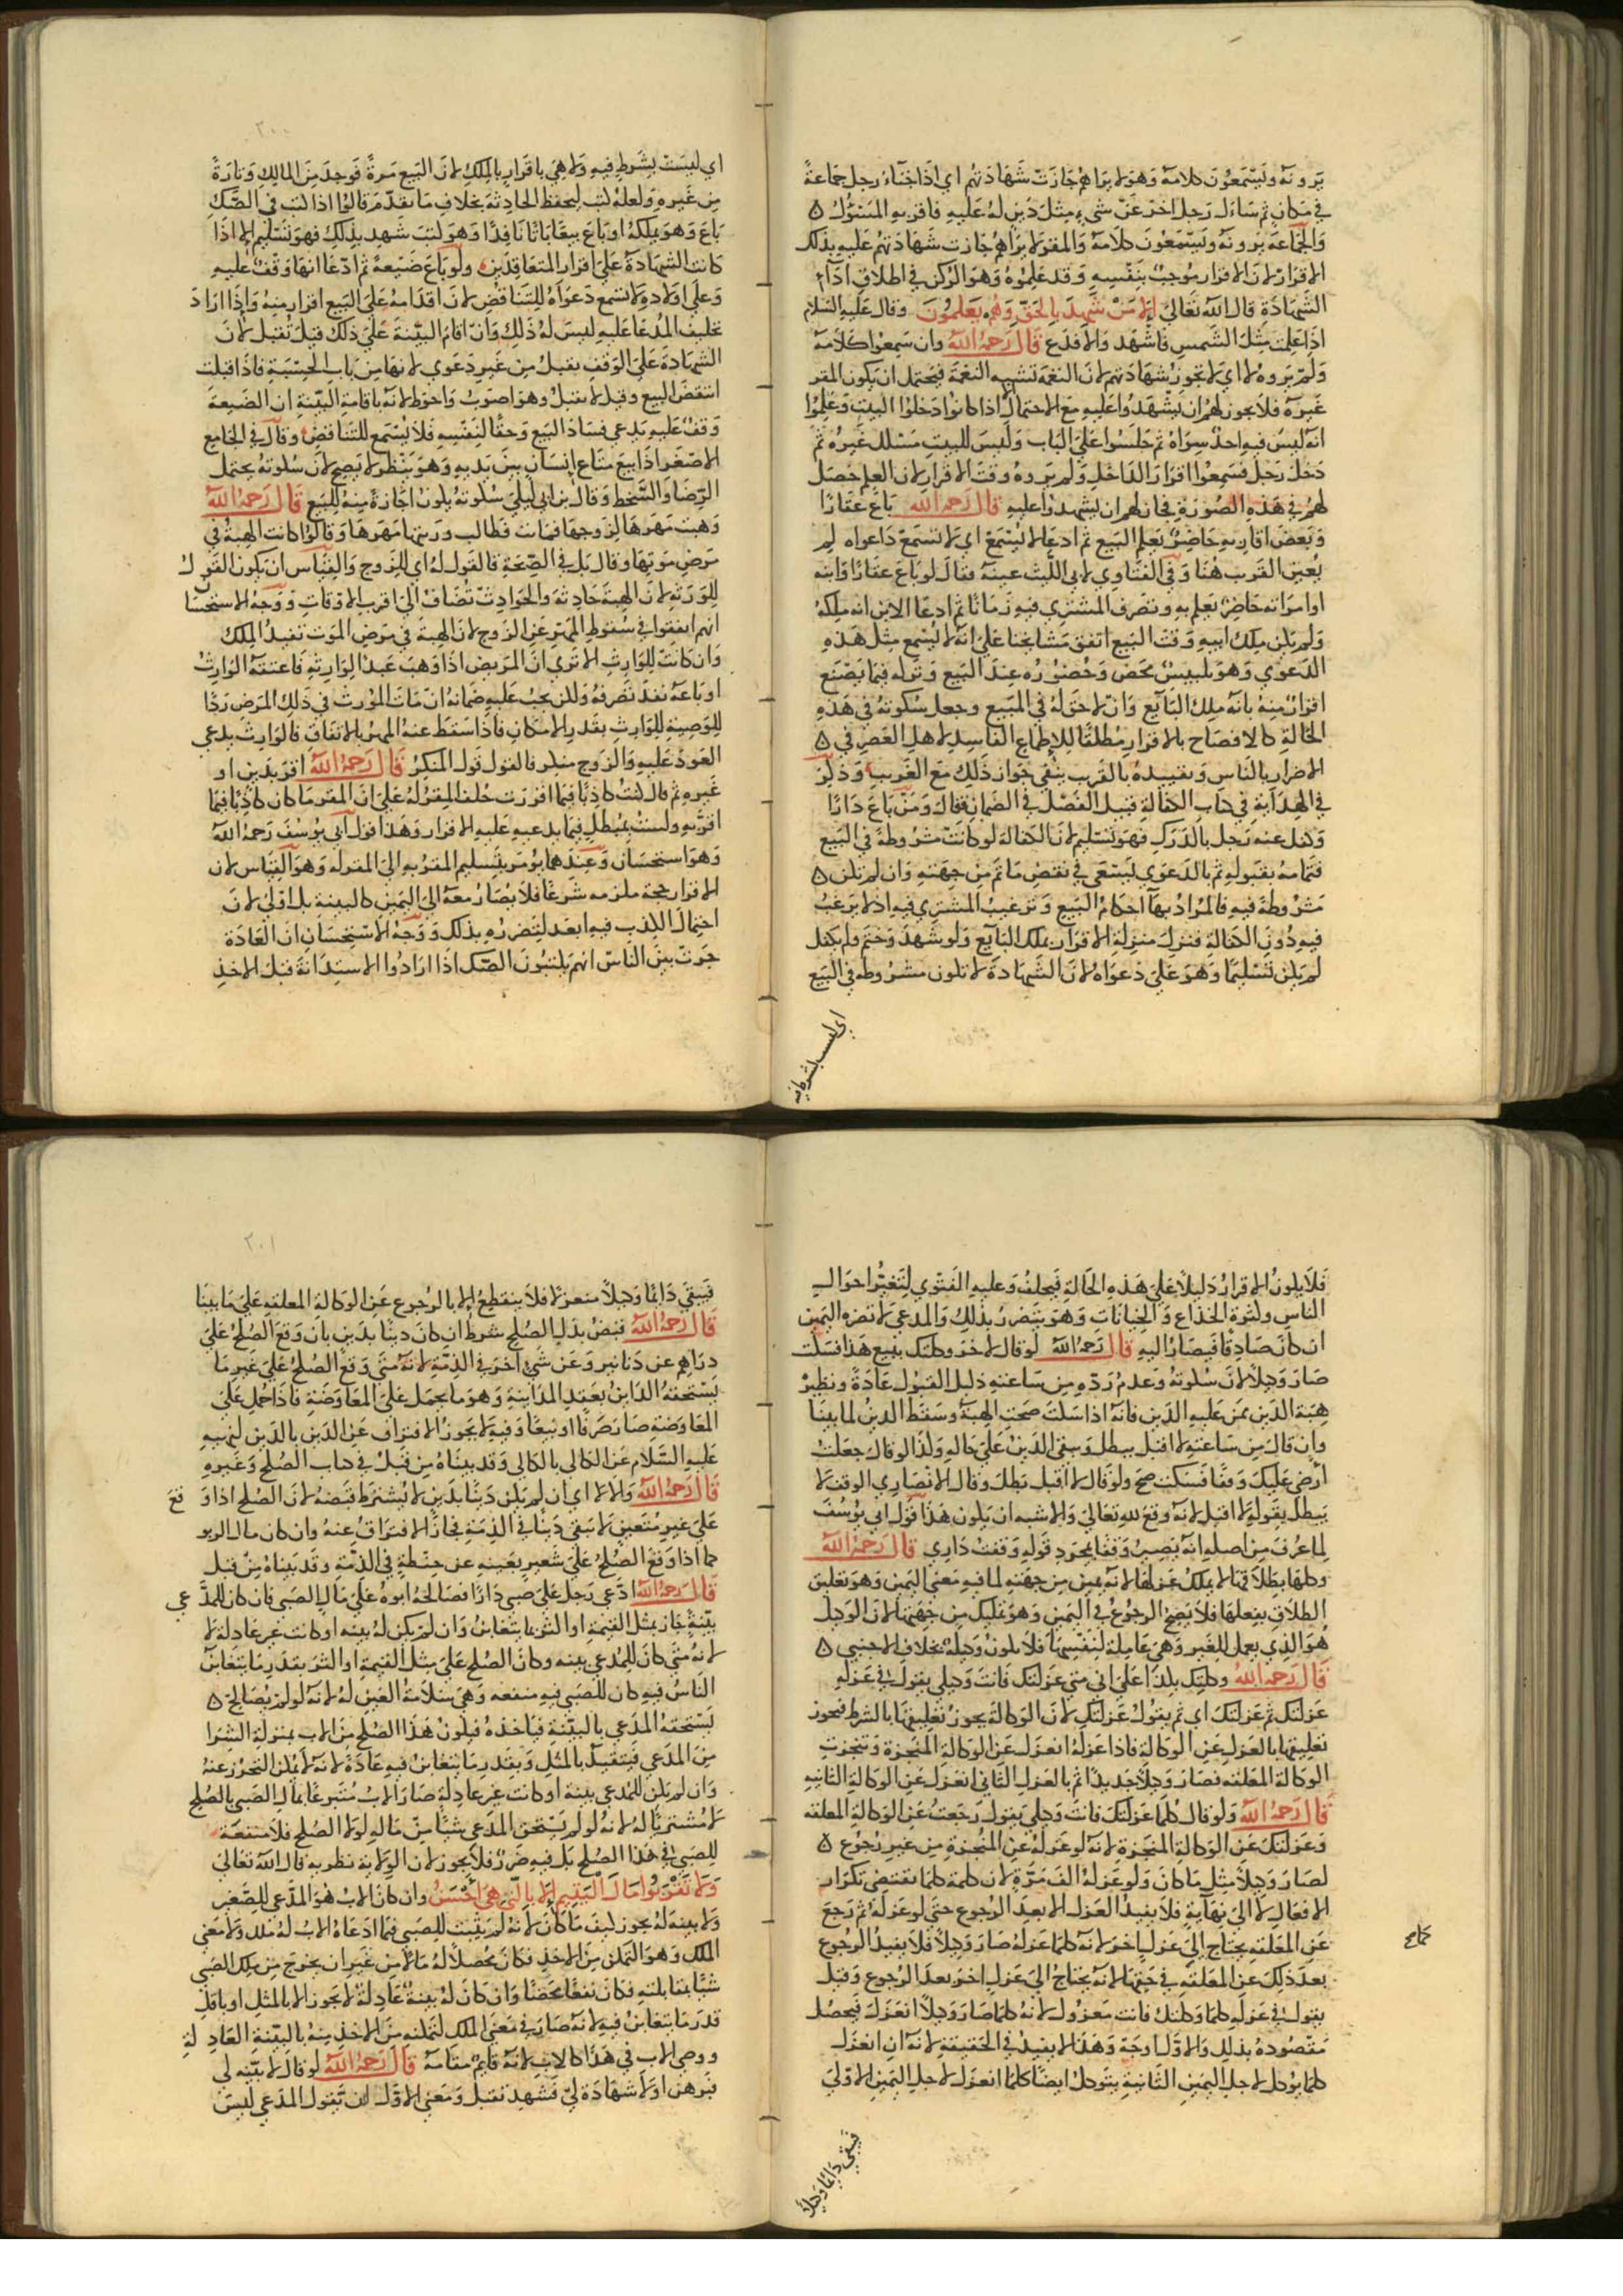 يرونه ويسمعون كلامه وهو لا يراهم جازت شهادتهم اي اذا خبأ رجل جماعة
في مكان ثم سأل رجل اخر عن شيء مثل دين له عليه فاقر به المسئول
والجماعة يرونه ويسمعون كلامه والمقر لا يراهم جازت شهادتهم عليه بذلك
لان الاقرار موجب بنفسه وقد علموه وهو الركن في اطلاق اداء
الشهادة قال الله تعالى الا من شهد بالحق وهم يعلمون وقال عليه السلام
اذا علمت مثل الشمس فاشهد والا فدع قال رحمه الله وان سمعوا كلامه
ولم يروه لا اي لا تجوز شهادتهم لان النغمة تشبه النغمة فيحتمل ان يكون المقر
غيره فلا يجوز لهم ان يشهدوا عليه مع الاحتمال الا اذا كانوا دخلوا البيت وعلموا
انه ليس فيه احد سواه ثم جلسوا على الباب وليس للبيت مسلك غيره ثم
دخل رجل فسمعوا اقرار الداخل ولم يروه وقت الاقرار لان العلم حصل
لهم في هذه الصورة فجاز لهم ان يشهدوا عليه قال رحمه الله باع عقارا
وبعض اقاربه حاضر يعلم البيع ثم ادعى لا يسمع اي لا تسمع دعواه لم
يعين القريب هنا وفي الفتاوي لابي الليث عينه فقال لو باع عقارا وابنه
او امراته حاضر يعلم به وتصرف المشتري فيه زمانا ثم ادعا الابن انه ملكه
ولم يكن ملك ابيه وقت البيع اتفق مشايخنا على انه لا يسمع مثل هذه
الدعوي وهو تلبيس محض وحضوره عند البيع وتركه فيما يصنع
اقرار منه بانه ملك البائع وان لا حق له في المبيع وجعل سكوته في هذه
الحالة كالافصاح بالاقرار مطلقا للاطماع الفاسدة لاهل العصر في
الاضرار بالناس وتقييده بالقريب ينفي جواز ذلك مع الغريب وذكر
في الهداية في كتاب الكفالة قبيل الفصل في الضمان فقال ومن باع دارا
وكفل عنه رجل بالدرك فهو تسليم لان الكفالة لو كانت مشروطة في البيع
فتمامه بقبوله ثم بالدعوي ليسعى في نقض ما تم من جهته وان لم تكن
مشروطة فيه فالمراد بها احكام البيع وترغيب المشتري فيه اذ لا يرغب
فيه دون الكفالة فنزل منزلة الاقرار بملك البائع ولو شهد وختم ولم يكفل
لم يكن تسليما وهو على دعواه لان الشهادة لا تكون مشروطة في البيع
اي ليست بشرط فيه
٢٠٠
اي ليست بشرط فيه ولا هي باقرار بالملك لان البيع مرة يوجد من المالك وتارة
من غيره ولعله كتب ليحفظ الحادثة بخلاف ما تقدم قالوا اذا كتب في الصك
باع وهو يملكه او باع بيعا باتا نافذا وهو كتب شهد بذلك فهو تسليم الا اذا
كانت الشهادة على اقرار المتعاقدين ولو باع ضيعة ثم ادعا انها وقف عليه
وعلى اولاده لا تسمع دعواه للتناقض لان اقدامه على البيع اقرار منه واذا اراد
تحليف المدعا عليه ليس له ذلك وان اقام البينة على ذلك قيل تقبل لان
الشهادة على الوقف تقبل من غير دعوي لانها من باب الحسبة فاذا قبلت
انتقض البيع وقيل لا تقبل وهو اصوب واحوط لانه باقامة البينة ان الضيعة
وقف عليه يدعي فساد البيع وحقا لنفسه فلا يسمع للتناقض وقال في الجامع
الاصغر اذا بيع متاع انسان بين يديه وهو ينظر لا يصح لان سكوته يحتمل
الرضا والسخط وقال بن ابي ليلي سكوته يكون اجازة منه للبيع قال رحمه الله
وهبت مهرها لزوجها فماتت فطالب ورثتها مهرها وقالوا كانت الهبة في
مرض موتها وقال بل في الصحة فالقول له اي للزوج والقياس ان يكون القول
للورثة لان الهبة حادثة والحوادث تضاف الى اقرب الاوقات ووجه الاستحسان
انهم اتفقوا في سقوط المهر عن الزوج لان الهبة في مرض الموت تفيد الملك
وان كانت للوارث الا تري ان المريض اذا وهب عبدا لوارثه فاعتقه الوارث
او باعه نفذ تصرفه ولكن يجب عليه ضمانه ان مات المورث في ذلك المرض ردا
للوصية للوارث بقدر الامكان فاذا سقط عنه المهر بالاتفاق فالوارث يدعي
العود عليه والزوج منكر فالقول قول المنكر قال رحمه الله اقر بدين او
غيره ثم قال كنت كاذبا فيما اقررت حلف المقر له على ان المقر ما كان كاذبا فيما
اقر به ولست بمبطل فيما يدعيه عليه الاقرار وهذا قول ابي يوسف رحمه الله
وهو استحسان وعندهما يؤمر بتسليم المقر به الى المقر له وهو القياس لان
الاقرار حجة ملزمه شرعا فلا يصار معه الى اليمين كالبينة بل اولى لان
احتمال الكذب فيه ابعد لتضرره بذلك ووجه الاستحسان ان العادة
جرت بين الناس انهم يكتبون الصك اذا ارادوا الاستدانة قبل الاخذ
فلا يكون الاقرار دليلا على هذه الحالة فيحلف وعليه الفتوي لتغير احوال
الناس وكثرة الخداع والخيانات وهو يتضرر بذلك والمدعي لا تضره اليمين
ان كان صادقا فيصار اليه قال رحمه الله لو قال لاخر وكلتك ببيع هذا فسكت
صار وكيلا لان سكوته وعدم رده من ساعته دليل القبول عادة ونظيره
هبة الدين ممن عليه الدين فانه اذا سكت صحت الهبة وسقط الدين لما بينا
وان قال من ساعته لا اقبل يبطل ويبقى الدين على حاله ولذا لو قال جعلت
ارضي عليك وقفا فسكت صح ولو قال لا اقبل بطل وقال الانصاري الوقف لا
يبطل بقوله لا اقبل لانه وقع لله تعالى والاشبه ان يكون هذا قول ابي يوسف
لما عرف من اصله انه يصير وقفا بمجرد قوله وقفت داري قال رحمه الله
وكلها بطلاقها لا يملك عزلها لانه يمين من جهته لما فيه معنى اليمين وهو تعليق
الطلاق بفعلها فلا يصح الرجوع في اليمين وهو تمليك من جهتها لان الوكيل
هو الذي يعمل للغير وهي عاملة لنفسها فلا تكون وكيلة بخلاف الاجنبي
قال رحمه الله وكلتك بكذا على اني متي عزلتك فانت وكيلي يقول في عزله
عزلتك ثم عزلتك اي ثم يقول عزلتك لان الوكالة يجوز تعليقها بالشرط فيجوز
تعليقها بالعزل عن الوكالة فاذا عزله انعزل عن الوكالة المنجزة وتنجزت
الوكالة المعلقه فصار وكيلا جديدا ثم بالعزل الثاني انعزل عن الوكالة الثانيه
قال رحمه الله ولو قال كلما عزلتك فانت وكيلي يقول رجعت عن الوكالة المعلقه
وعزلتك عن الوكالة المنجزة لانه لو عزله عن المنجزة من غير رجوع
لصار وكيلا مثل ما كان ولو عزله الف مرة لان كلمة كلما تقتضي تكرار
الافعال لا الى نهاية فلا يفيد العزل الا بعد الرجوع حتى لو عزله ثم رجع
عن المعلقه يحتاج الى عزل اخر لانه كلما عزله صار وكيلا فلا يفيد الرجوع
بعد ذلك عن المعلقه في حقها لانه يحتاج الى عزل اخر بعد الرجوع وقيل
يقول في عزله كلما وكلتك فانت معزول لانه كلما صار وكيلا انعزل فيحصل
مقصوده بذلك والاول اوجه وهذا لا يفيد في الحقيقة لانه ان انعزل
كلما يوكل لاجل اليمين الثانية يتوكل ايضا كلما انعزل لاجل اليمين الاولي
فيبقى دائما وكيلا
٢٠١
فيبقى دائما وكيلا منعزلا فلا ينقطع الا بالرجوع عن الوكالة المعلقه على ما بينا
قال رحمه الله قبض بدل الصلح شرط ان كان دينا بدين بان وقع الصلح على
دراهم عن دنانير وعن شيء اخر في الذمة لانه متى وقع الصلح على غير ما
يستحقه الدائن بعقد المداينة وهو ما يحمل على المعاوضة فاذا حمل على
المعاوضه صار صرفا او بيعا وفيه لا يجوز الافتراق عن الدين بالدين لنهيه
عليه السلام عن الكالي بالكالي وقد بيناه من قبل في كتاب الصلح وغيره
قال رحمه الله والا لا اي ان لم يكن دينا بدين لا يشترط قبضه لان الصلح اذا وقع
على غير متعين لا يبقى دينا في الذمة فجاز الافتراق عنه وان كان مال الربو
كما اذا وقع الصلح على شعير بعينه عن حنطة في الذمة وقد بيناه من قبل
قال رحمه الله ادعى رجل على صبي دارا فصالحه ابوه على مال الصبي فان كان للمدعي
بينة جاز بمثل القيمة او اكثر بما يتغابن وان لم يكن له بينه او كانت غير عادلة لا
لانه متى كان للمدعي بينه وكان الصلح على مثل القيمة او اكثر بقدر ما يتغابن
الناس فيه كان للصبي فيه منفعه وهي سلامة العين له لانه لو لم يصالح
يستحقه المدعي بالبينة فياخذه فيكون هذا الصلح من الاب بمنزلة الشرا
من المدعي فيتقيد بالمثل وبقدر ما يتغابن فيه عادة لانه لا يمكن التحرز عنه
وان لم يكن للمدعي بينة او كانت غير عادلة صار الاب متبرعا بمال الصبي بالصلح
لا مشتريا له لانه لو لم يستحق المدعي شيئا من ماله لولا الصلح فلا منفعة
للصبي في هذا الصلح بل فيه ضرر فلا يجوز لان الولاية نظريه قال الله تعالى
ولا تقربوا مال اليتيم الا بالتي هي احسن وان كان الاب هو المدعي للصغير
ولا بينه له يجوز كيف ما كان لانه لم يثبت للصبي فيما ادعاه الاب له ملك ولا معنى
الملك وهو التمكن من الاخذ فكان محصلا له مالا من غير ان يخرج من ملك الصبي
شيئا بمقابلته فكان نفعا محضا وان كان له بينة عادلة لا يجوز الا بالمثل او باقل
قدر ما يتغابن فيه لانه صار في معنى الملك لتمكنه من الاخذ منه بالبينة العادلة
ووصي الاب في هذا كالاب لانه قائم مقامه قال رحمه الله لو قال لا بينه لي
فبرهن او لا شهادة لي فشهد تقبل ومعنى الاول ان يقول المدعي ليس